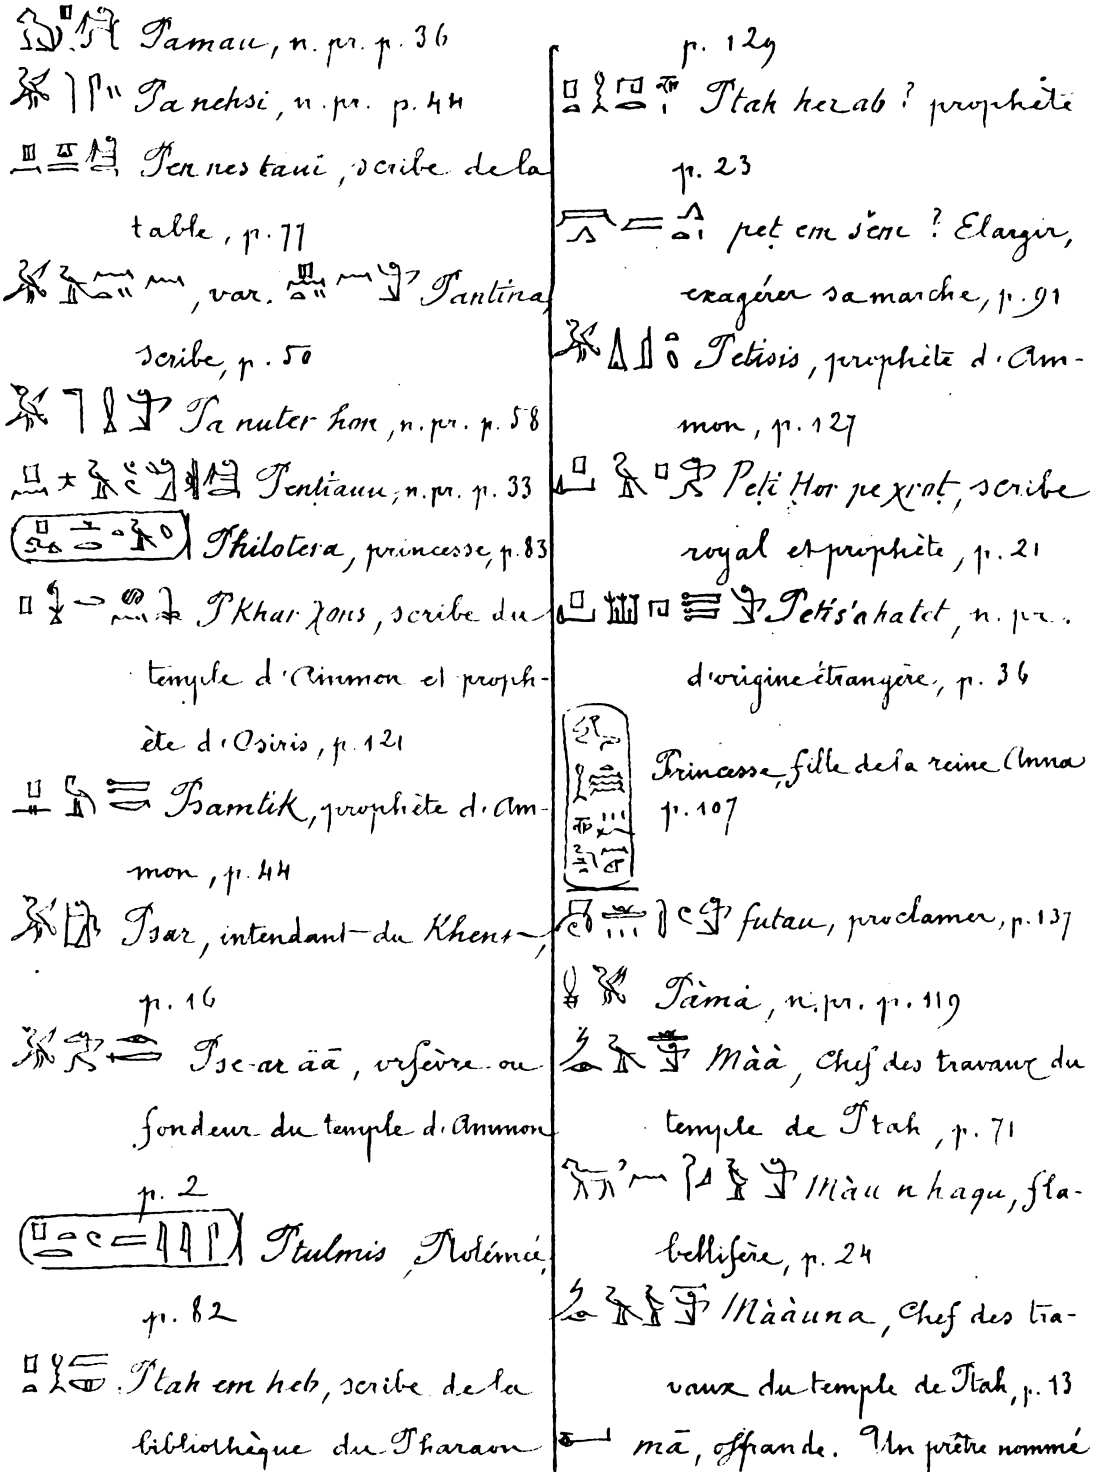 Pamau, n. pr. p. 36
Panehsi, n. pr. p. 44
Pen nes taui, scribe de la
table, p. 77
, var. Pantina,
scribe, p. 50
Pa nuter hon, n. pr. p. 58
Pentiauu, n. pr. p. 33
Philotera, princesse, p. 83
PKhar χons, scribe du
temple d'Ammon et proph-
ète d'Osiris, p. 121
Psamtik, prophète d'Am-
mon, p. 44
Psar, intendant du Khent,
p. 16
Pse-ar āā, orfèvre ou
fondeur du temple d'Ammon
p. 2
Ptulmis, Ptolémée,
p. 82
Ptah em heb, scribe de la
bibliothèque du Pharaon
p. 129
Ptah het ab ? prophète
p. 23
peṭ em s'em ? Elargir,
exagérer sa marche, p. 91
Petisis, prophète d'Am-
mon, p. 127
Peti Hor pe χroṭ, scribe
royal et prophète, p. 21
Petis'ahatet, n. pr.
d'origine étrangère, p. 36
Princesse, fille de la reine Anna
p. 107
futau, proclamer, p. 137
Pàmà, n. pr. p. 119
Màà, Chef des travaux du
temple de Ptah, p. 71
Màu n haqu, fla-
bellifère, p. 24
Mààuna, Chef des tra-
vaux du temple de Ptah, p. 13
mā, offrande. Un prêtre nommé